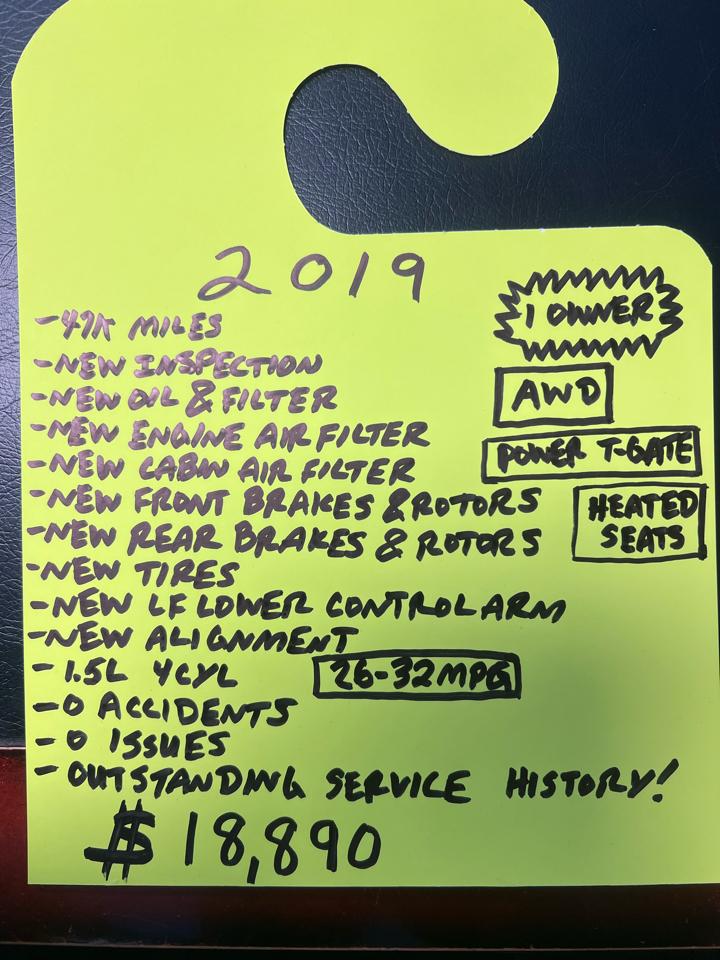 2019
1 OWNER
-47K MILES
-NEW INSPECTION
-NEW OIL & FILTER
AWD
-NEW ENGINE AIR FILTER
POWER T-GATE
-NEW CABIN AIR FILTER
-NEW FRONT BRAKES & ROTORS
HEATED
SEATS
-NEW REAR BRAKES & ROTORS
-NEW TIRES
-NEW LF LOWER CONTROL ARM
-NEW ALIGNMENT
- 1.5L 4CYL
26-32MPG
-0 ACCIDENTS
- 0 ISSUES
- OUTSTANDING SERVICE HISTORY!
$18,890